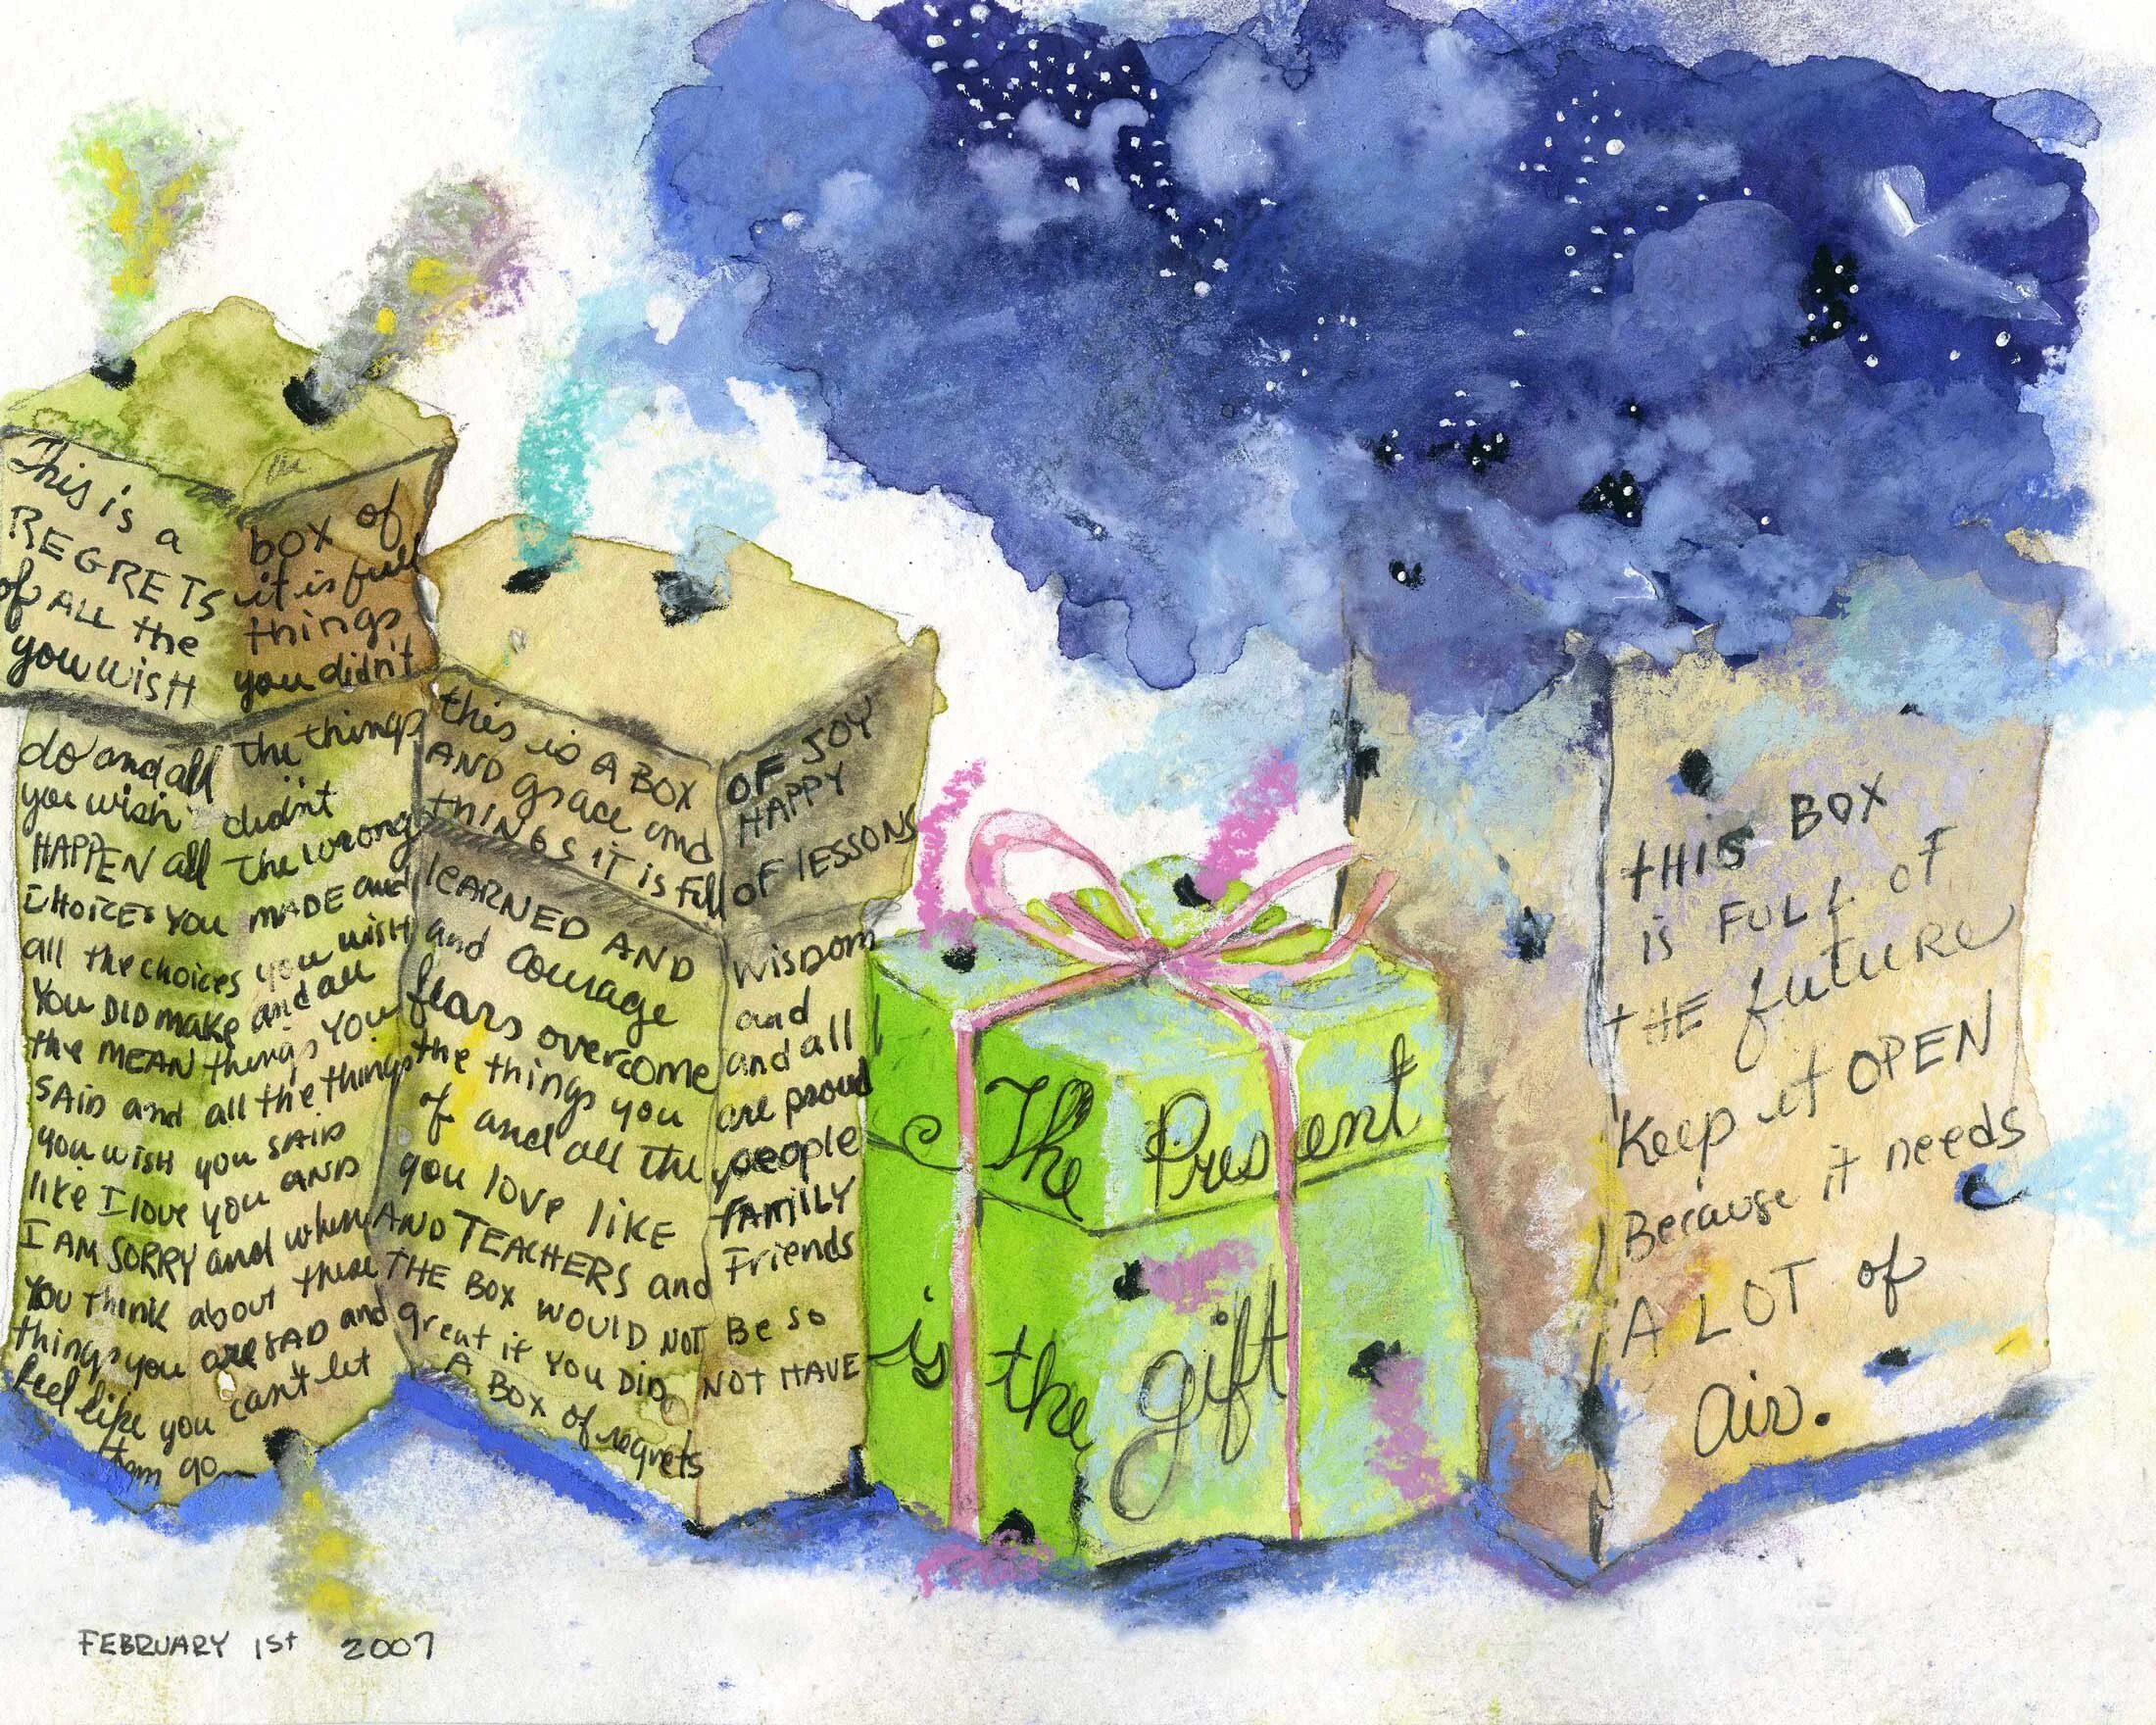 This is a box of
REGRETS it is full
of ALL the things
you WISH you didn't
do and all the things
you wish didn't
HAPPEN all the wrong
CHOICES YOU MADE and
all the choices you wish
YOU DID make and all
the MEAN things YOU
SAID and all the things
you wish you SAID
like I love you AND
I AM SORRY and when
YOU think about these
things you are SAD and
feel like you can't let
them go
this is A BOX OF JOY
AND grace and HAPPY
tHINGS IT is full OF LESSONS
leARNED AND WISDOM
and Courage and
fears overcome and all
the things you are proud
of and all the people
you love like FAMILY
AND TEACHERS and Friends
THE BOX WOULD NOT Be so
great if YOU DID NOT HAVE
A BOX of regrets
The Present
is the gift
tHIS BOX
is FULL OF
tHE future
Keep it OPEN
Because it needs
A LOT of
Air.
FEBRUARY 1st 2007